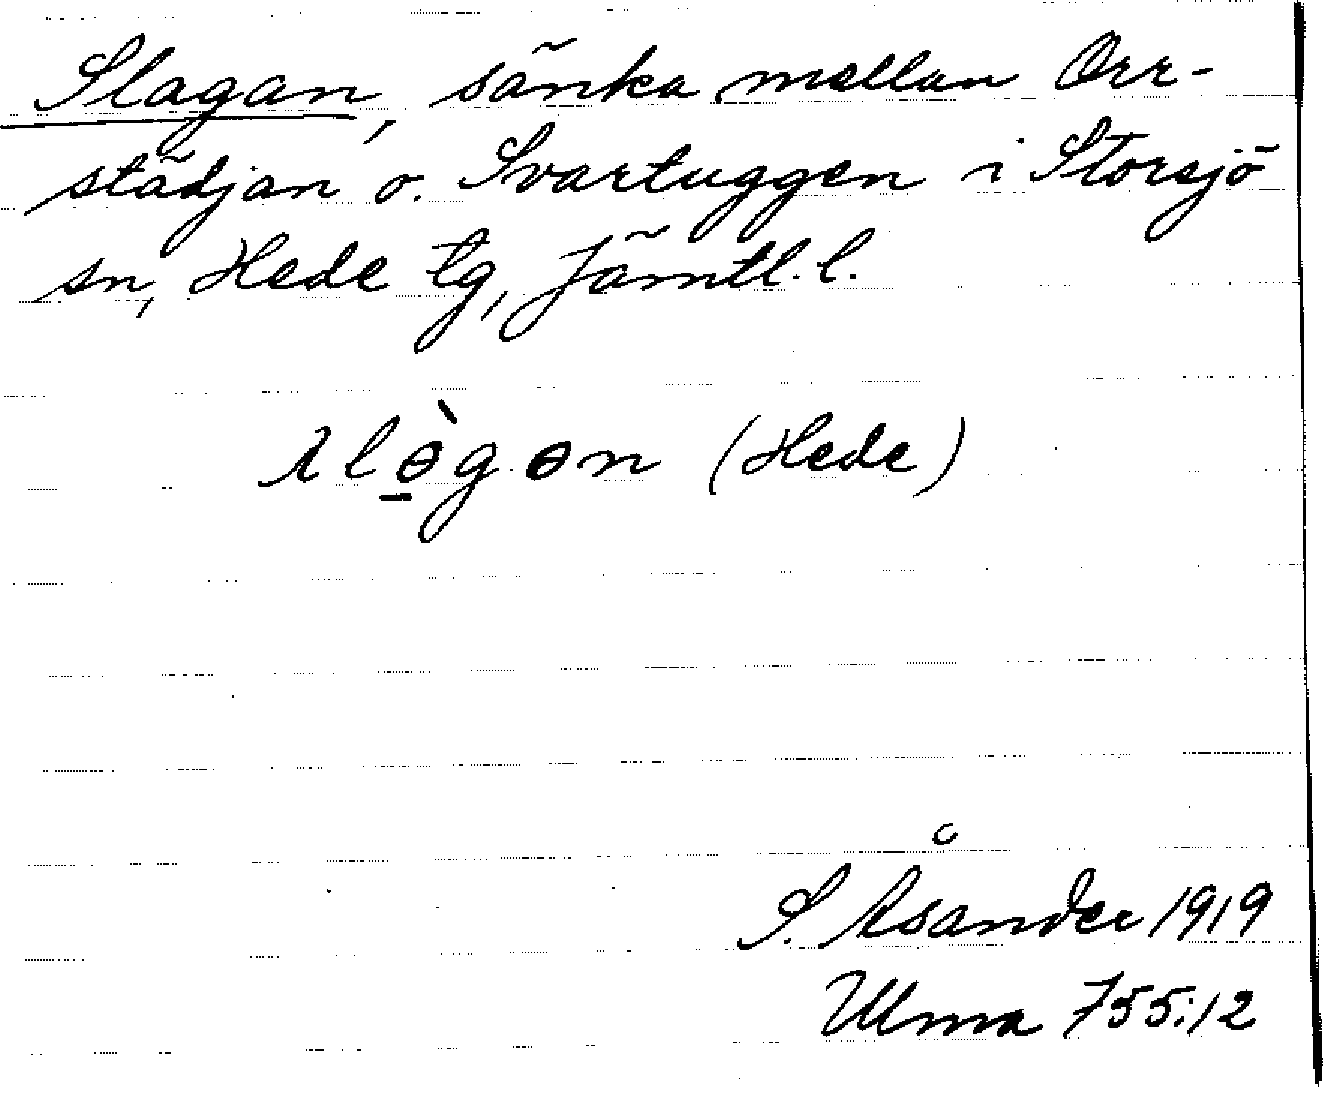 Slagan, sänka mellan Orr-
städjan o. Svartuggen i Storsjö
sn, Hede tg, Jämtl. l.
slɵ̠̀gɵn (Hede)
S. Åsander 1919
Ulma 755:12